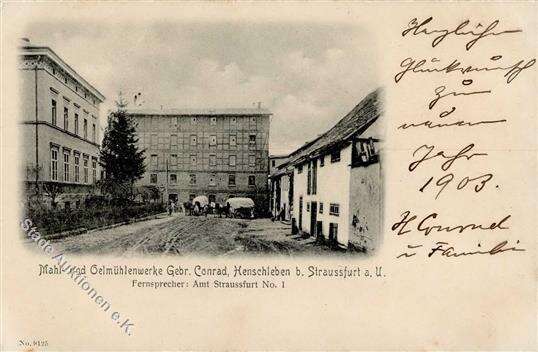 Herzlichen
Glückwunsch
zum
neuen
Jahr
1903.
H Conrad
u Familie
Mahl- und Oelmühlenwerke Gebr. Conrad, Henschleben b. Straussfurt a. U.
Fernsprecher: Amt Straussfurt No. 1
Stade Auktionen e.K.
No. 9125